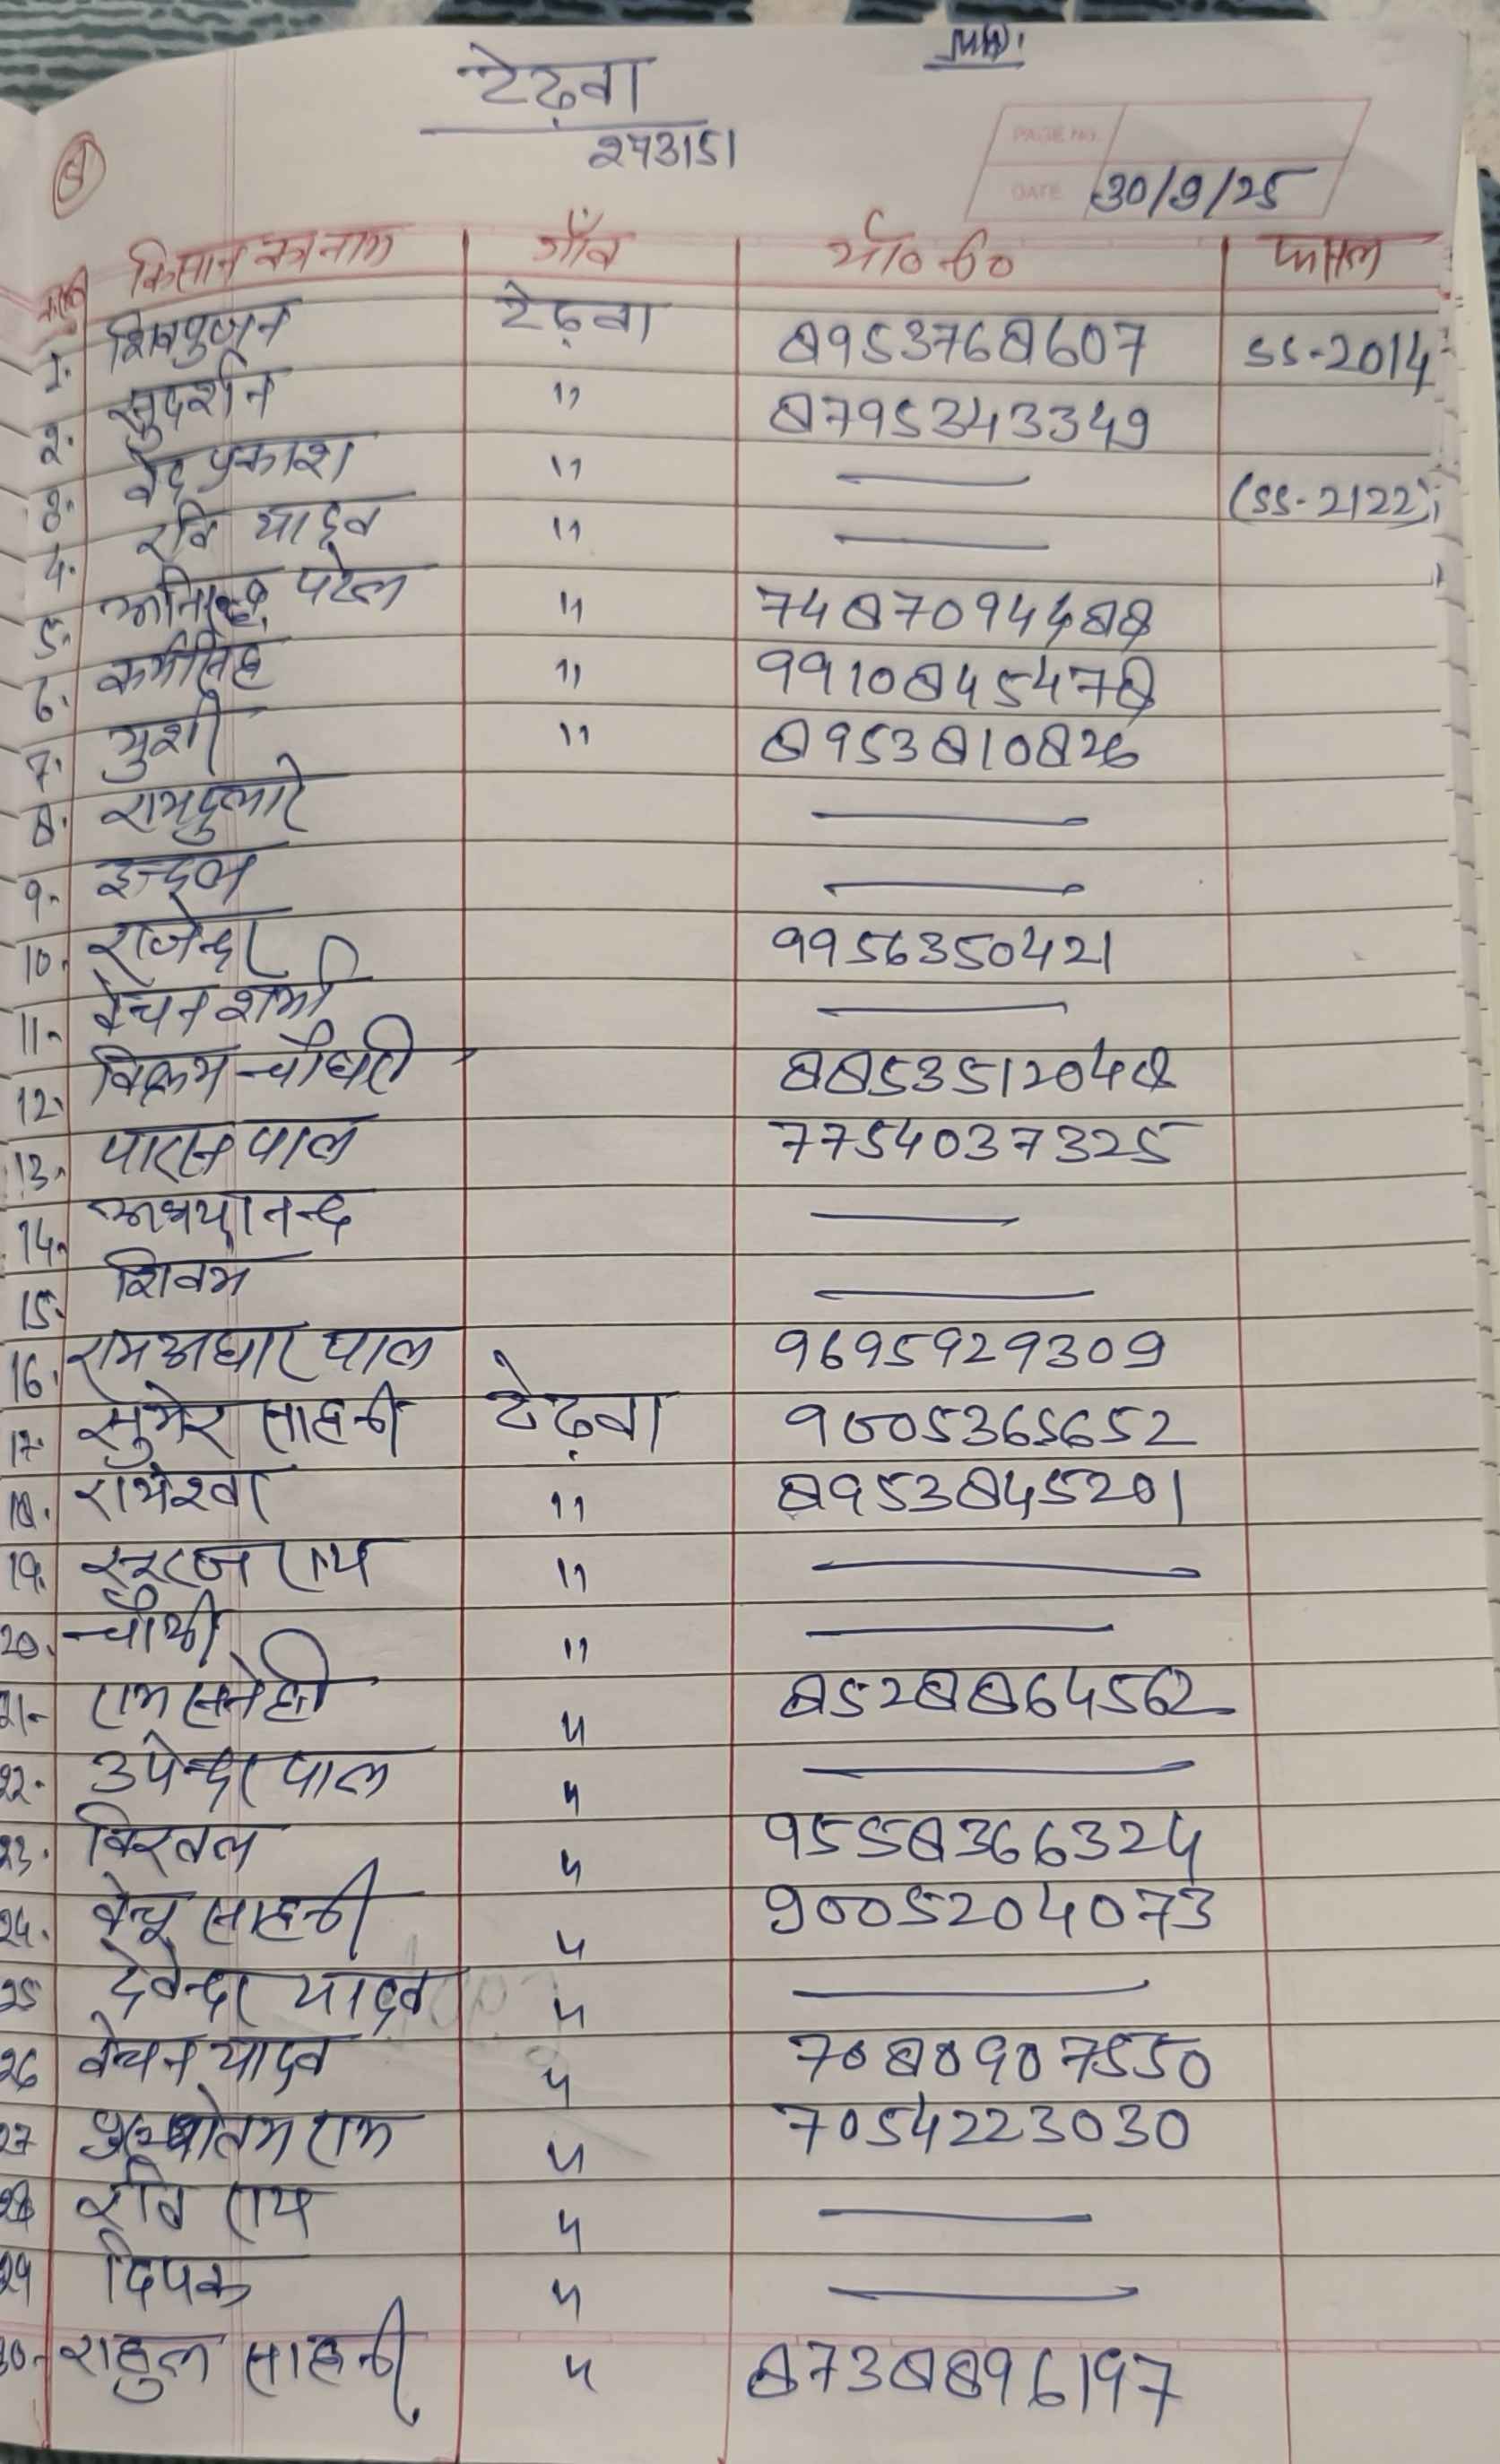 टेढ़वा
PAGE NO.
DATE 30/9/25
किसान का नाम गाँव मो० नं० फसल
1. शिवपुजन टेढ़वा 8953768607 SS-2014
2. सुदर्शन " 8795343349
3. वेद प्रकाश " — (SS-2122)
4. रवि यादव " —
5. अनिरुद्ध पटेल " 7487094488
6. कर्मसिंह " 9910845478
7. मुंशी " 8953810826
8. रामदुलारे —
9. इन्दल —
10. राजेन्द्र 9956350421
11. वेचन शर्मा —
12. विक्रम चौधरी 8853512048
13. पारस पाल 7754037325
14. अभयानन्द —
15. शिवम —
16. रामअधार पाल 9695929309
17. सुमेर साहनी टेढ़वा 9005365652
18. रामेश्वर " 8953845201
19. सूरज राय " —
20. चौथी " —
21. राम सनेही " 8528864562
22. उपेन्द्र पाल " —
23. " 9558366324
24. वेचू साहनी " 9005204073
25 देवेन्द्र यादव " —
26 वेचन यादव " 7080907550
27 पुरुषोतम राम " 7054223030
28 रवि राय " —
29 दिपक " —
30. राहुल साहनी " 8738896197